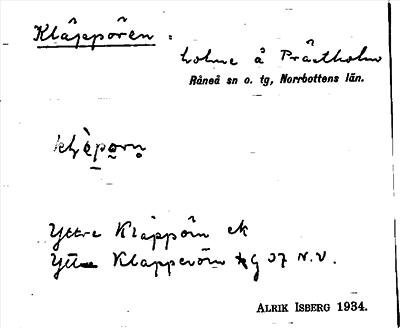 Kläppören :
holme å Prästholm
Råneå sn o. tg, Norrbottens län.
Yttre Kläppörn ek
Ytt Klapperörn g 37 N.V.
ALRIK ISBERG 1934.